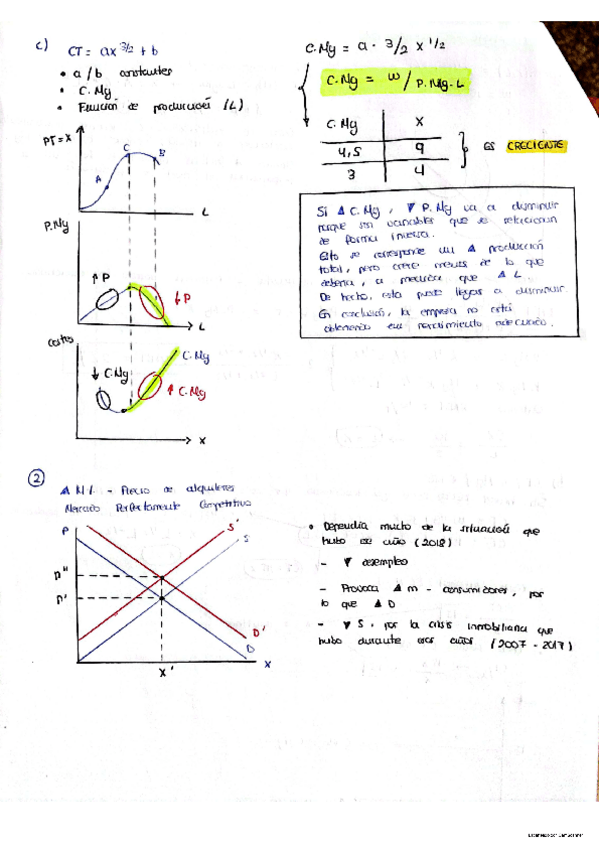 c) CT = ax 3/2 + b
• a / b constantes
• C.Mg
• Función de producción (L)
C.Mg = a · 3/2 x 1/2
C.Mg = w / P.Mg.L
C.Mg X
4,5 9
3 4
ES CRECIENTE
PT = X
A
C
B
L
P.Mg
↑ P
↓ P
L
Costes
C.Mg
↓ C.Mg
↑ C.Mg
X
Si ▲ C.Mg, ▼ P.Mg va a disminuir
porque son variables que se relacionan
de forma inversa.
Esto se corresponde un ▲ producción
total, pero crece menos de lo que
debería, a medida que ▲ L.
De hecho, esta puede llegar a disminuir.
En conclusión, la empresa no está
obteniendo un rendimiento adecuado.
2
- Precio de alquileres
Mercado Perfectamente Competitivo
P
S'
S
P''
P'
D'
D
X'
X
• Dependía mucho de la situación que
hubo ese año (2018)
- ▼ desempleo
- Provoca ▲ m - consumidores, por
lo que ▲ D
- ▼ S, por la crisis inmobiliaria que
hubo durante esos años (2007 - 2017)